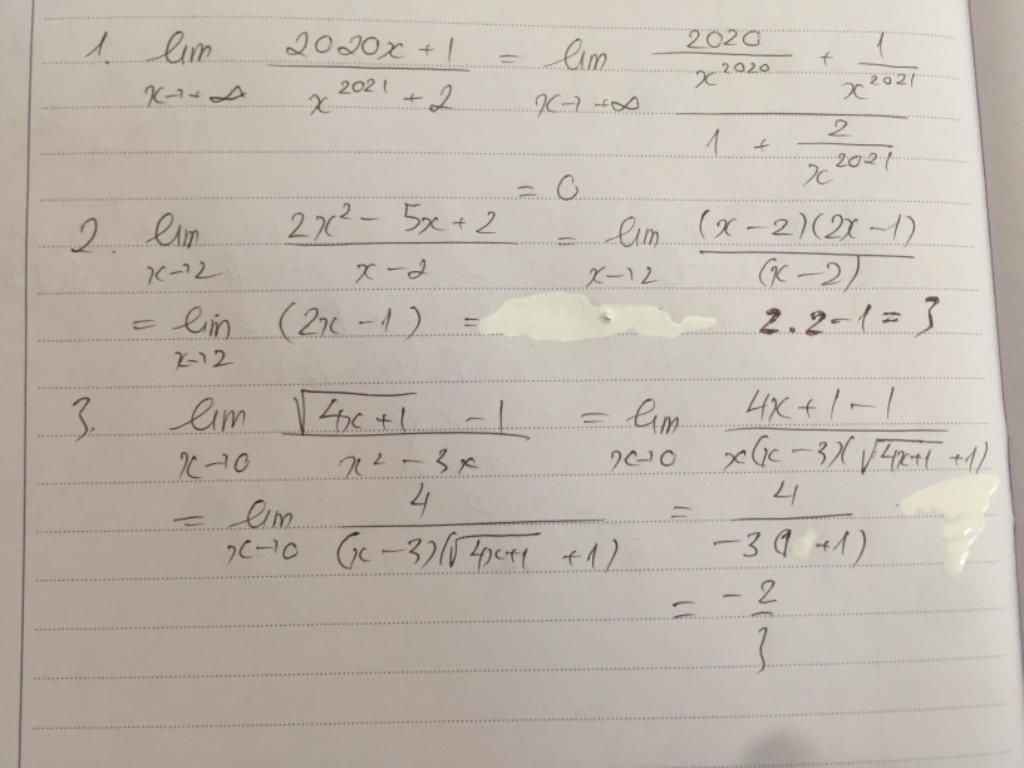 1. lim x→+∞ (2020x + 1)/(x^2021 + 2) = lim x→+∞ (2020/x^2020 + 1/x^2021)/(1 + 2/x^2021)
= 0
2. lim x→2 (2x² - 5x + 2)/(x - 2) = lim x→2 ((x - 2)(2x - 1))/((x - 2))
= lim x→2 (2x - 1) = 2.2 - 1 = 3
3. lim x→0 (√(4x + 1) - 1)/(x² - 3x) = lim x→0 (4x + 1 - 1)/(x(x - 3)(√(4x+1) + 1))
= lim x→0 4/((x - 3)(√(4x+1) + 1)) = 4/(-3(1 + 1))
= -2/3